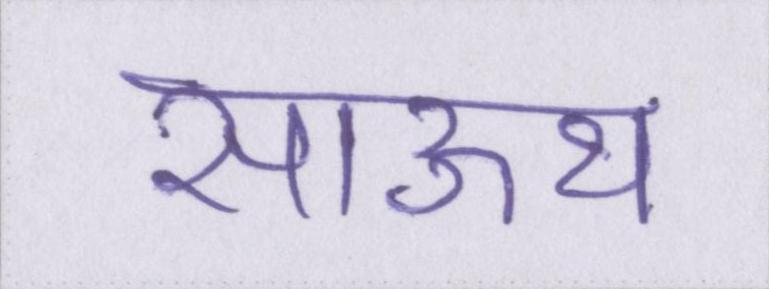 साऊथ